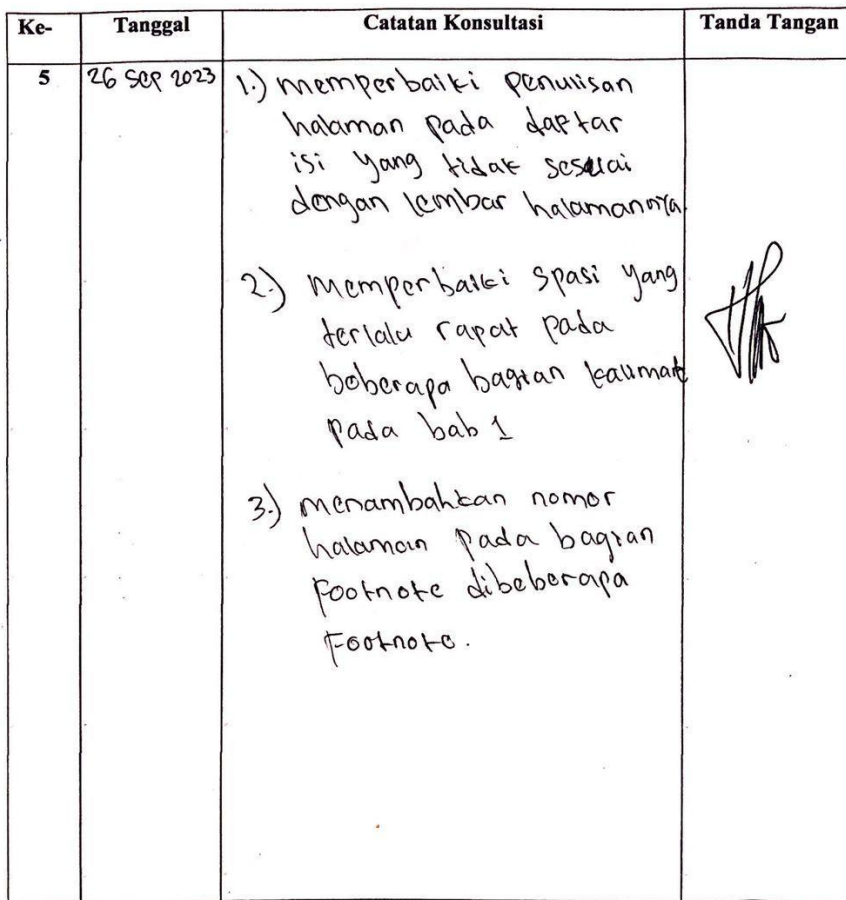 Ke- Tanggal Catatan Konsultasi Tanda Tangan
5 26 Sep 2023 1.) memperbaiki penulisan
halaman pada daftar
isi yang tidak sesuai
dengan lembar halamannya.
2.) memperbaiki spasi yang
terlalu rapat pada
beberapa bagian kalimat
pada bab 1
3.) menambahkan nomor
halaman pada bagian
footnote dibeberapa
Footnote.